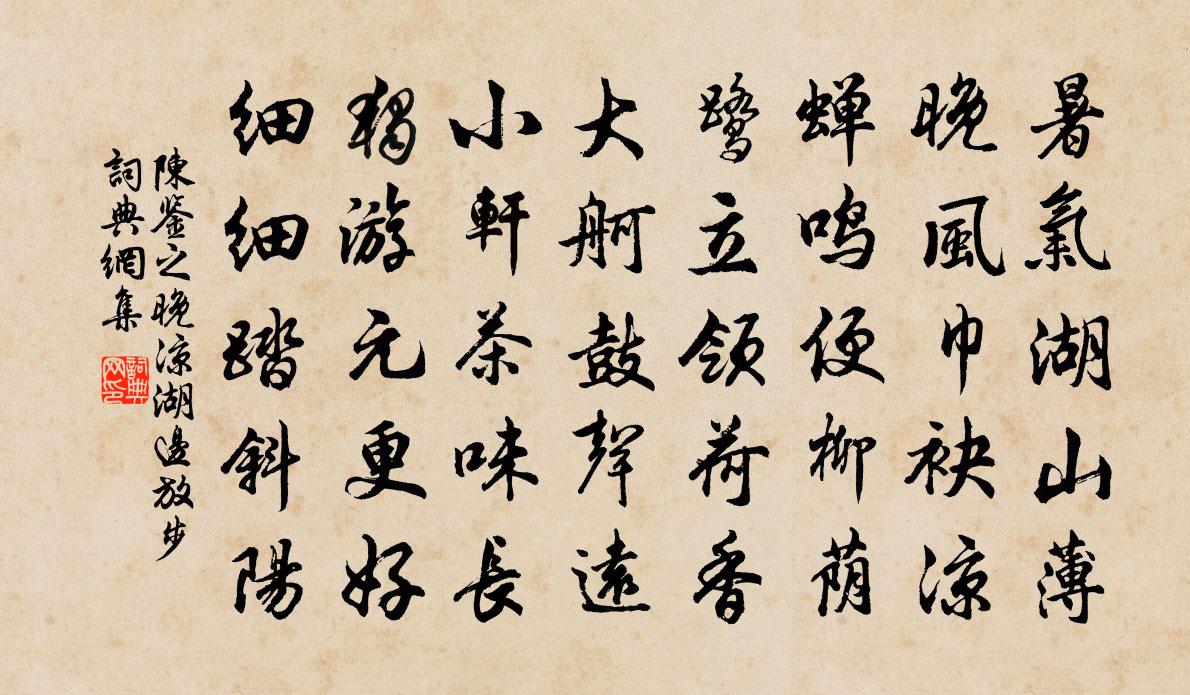 暑氣湖山薄
晚風巾袂涼
蝉鸣便柳荫
鹭立领荷香
大舸鼓聲遠
小軒茶味長
獨游元更好
细细踏斜陽
陳鉴之晚凉湖邊放步
詞典網集
詞典网印